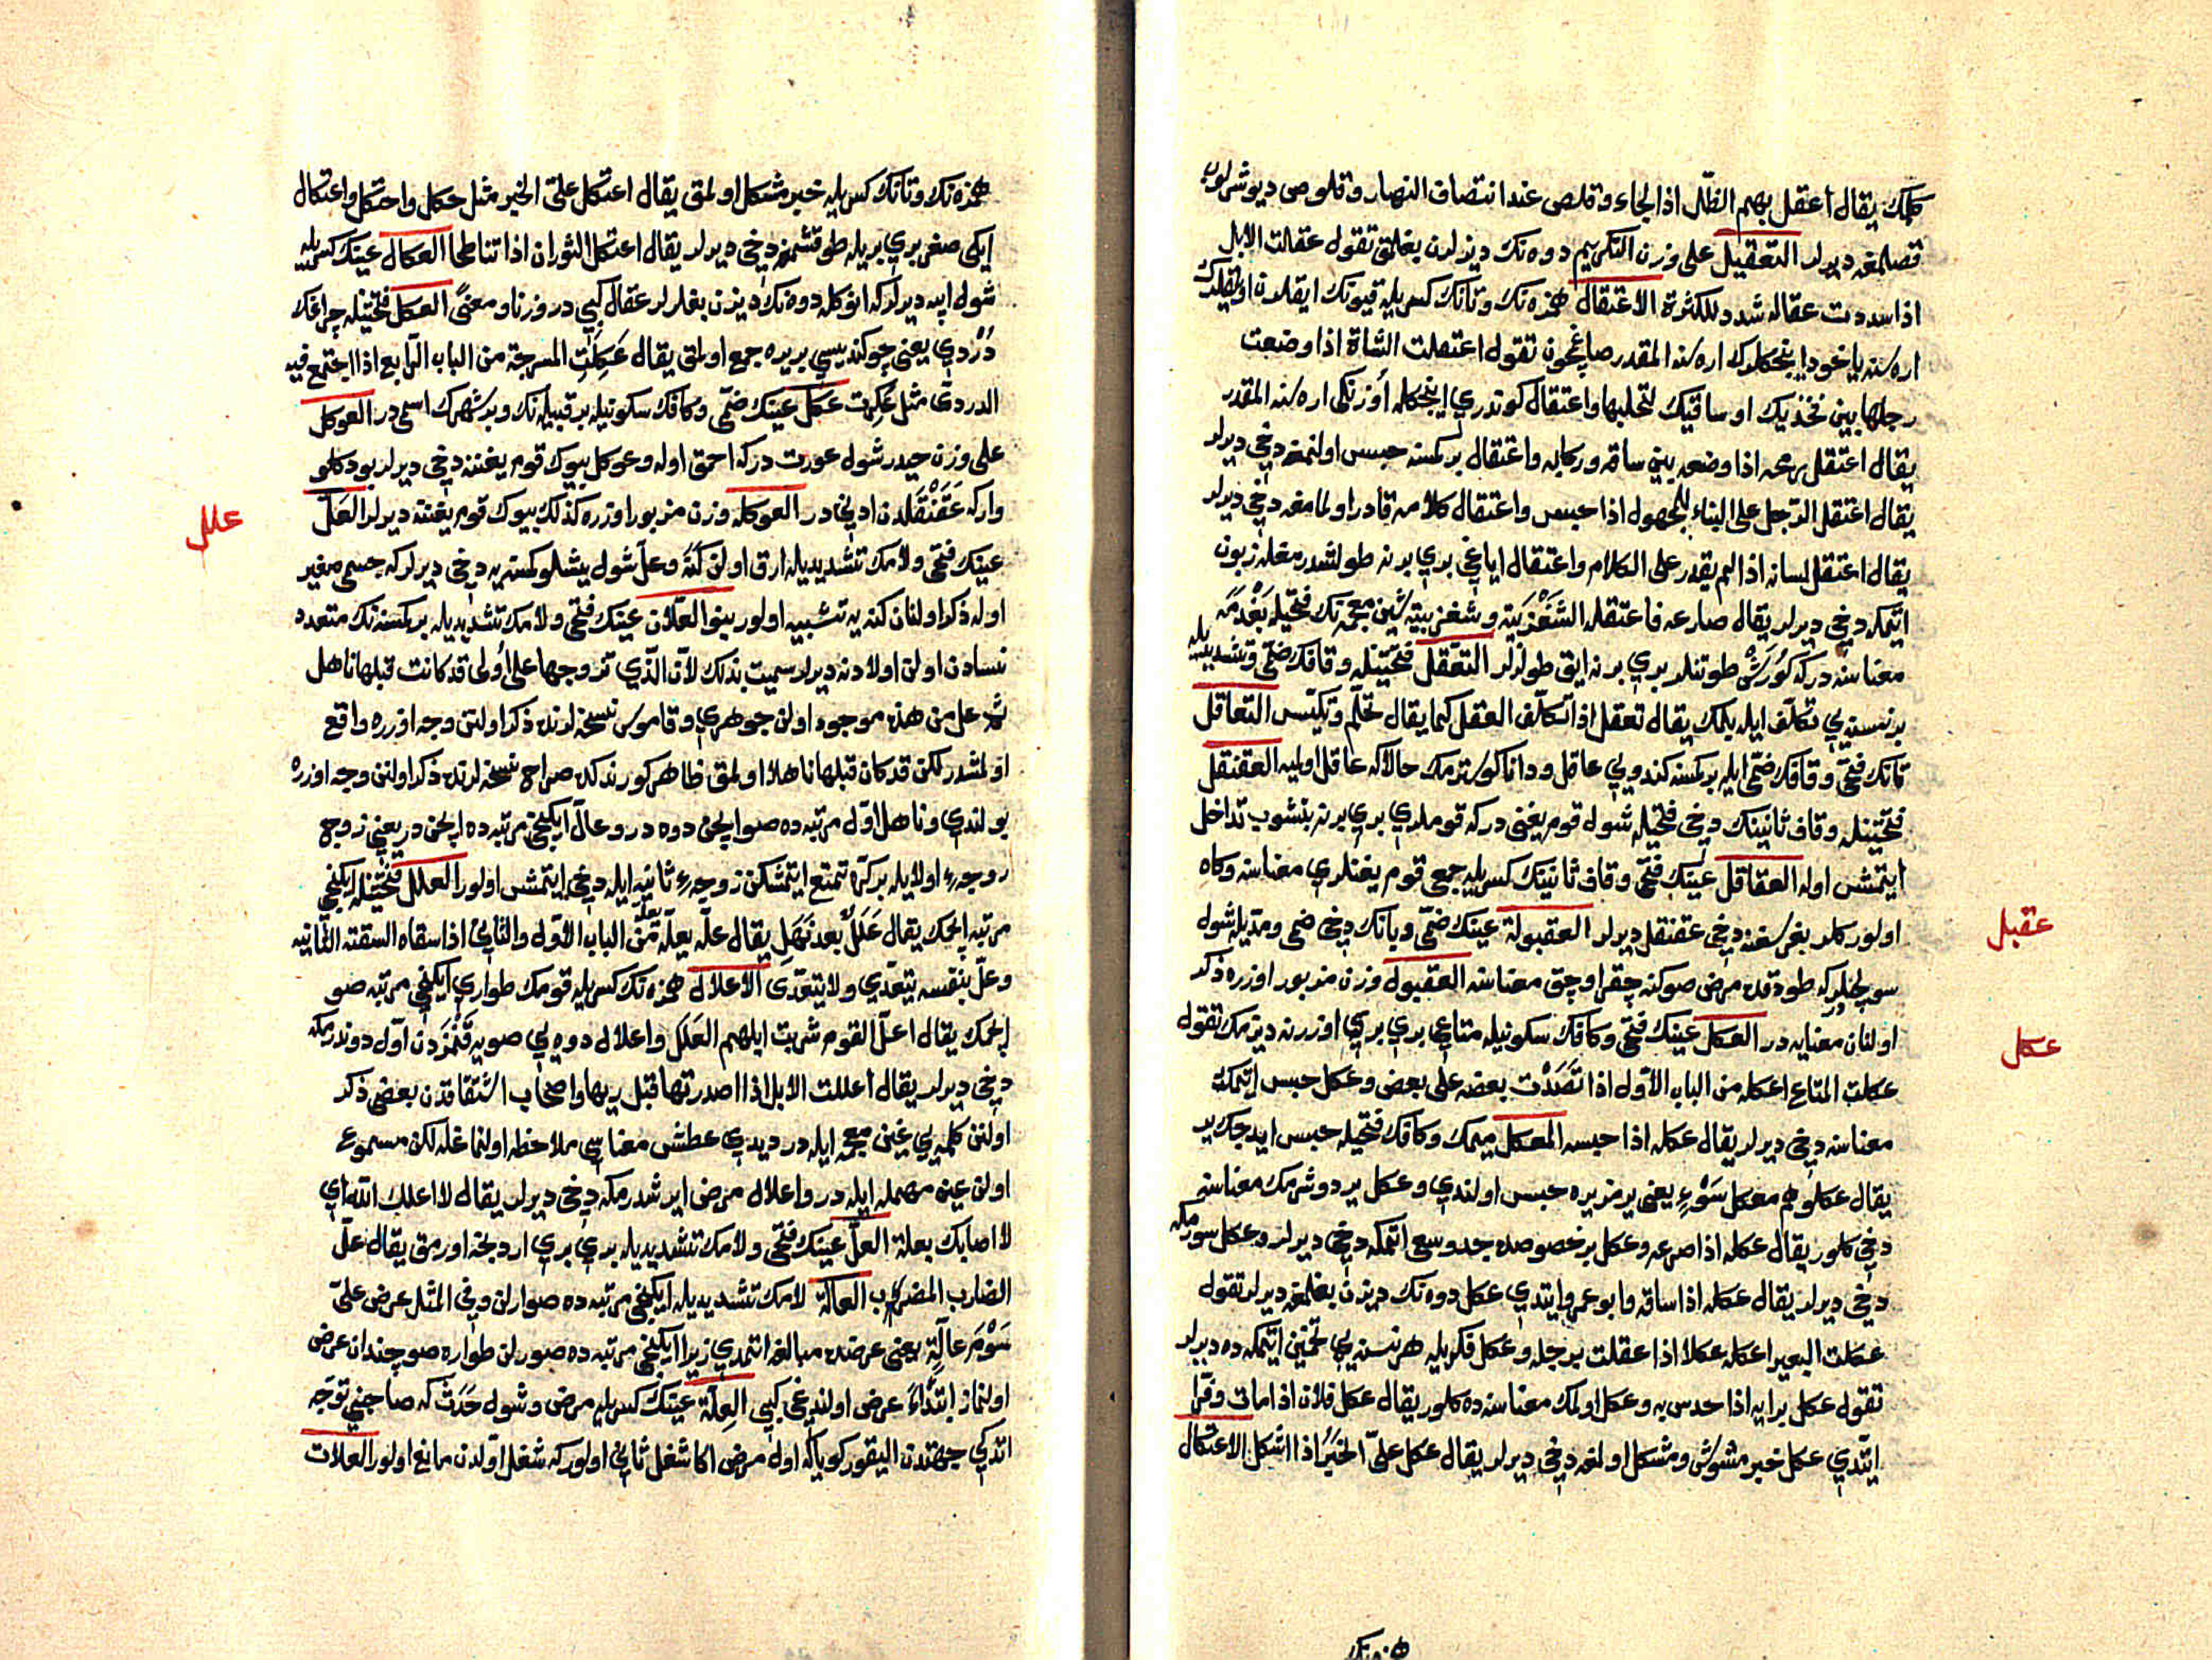 كلمك يقال اعقل بهم الظل اذا لجاء وقلص عند انتصاف النهار وقلوص ديوشرلوب
قصلمغه ديرلر التعقيل على وزن التكريم دوه نك ديزلرن بغلمق تقول عقلت الابل
اذا سددت عقاله شدد للكثرة الاعتقال همزه نك وتانك كسريله قيونك ايقلرن
اره سنه ياخود اينجكلرك اره سنه المقدر صاغيچون تقول اعتقلت الشاة اذا وضعت
رجلها بين فخذيك او ساقيك لتحلبها واعتقال كوندري اينجكله اوزنكى اره سنه المقدر
يقال اعتقل رمحه اذا وضعه بين ساقه وركابه واعتقال بر كمسنه حبس اولنمغه دخي ديرلر
يقال اعتقل الرجل على البناء للمجهول اذا حبس واعتقال كلامه قادر اولمامغه دخي ديرلر
يقال اعتقل لسانه اذا لم يقدر على الكلام واعتقال اياغي بري برنه طولشدرمغله زبون
اتمكه دخي ديرلر يقال صارعه فاعتقله الشغزبية وشغزبية شين معجمه نك فتحيله بغدمه
معناسنه در كه كورش طوتنلر بري برنه ايق طولرلر التعقل فتحتينله وقافك ضمى وتشديديله
بر نسنه يي تكلف ايله بلمك يقال تعقل اذا تكلف العقل كما يقال تحلم وتكيس التعاقل
تانك فتحى وقافك ضمى ايله بر كمسنه كندويي عاقل ودانا كوسترمك حالا كه عاقل اولميه العقنقل
فتحتينله وقاف ثانينك دخي فتحيله شول قوم يغنى در كه قوملري بري برنه بتشوب تداخل
ايتمش اوله العقاقل عينك فتحى وقاف ثانينك كسريله جمعى قوم يغنلري معناسنه وكاه
اولور كلر بغرسغنه دخي عقنقل ديرلر العقبولة عينك ضمى وبانك دخي ضمى ومديله شول
سويلجكلردر كه طودقده مرض صوكنه چقر اوچق معناسنه العقبول وزن مزبور اوزره ذكر
اولنان معنايه در العكل عينك فتحى وكافك سكونيله متاعى بري بري اوزرنه ديزمك تقول
عكلت المتاع اعكله من الباب الاول اذا نضدت بعضه على بعض وعكل حبس اتمك
معناسنه دخي ديرلر يقال عكله اذا حبسه المعكل ميمك وكافك فتحيله حبس ايدجك ير
يقال عكلوهم معكل سوء يعنى يرمز يره حبس اولندي وعكل يره دوشرمك معناسنه
دخي كلور يقال عكله اذا صرعه وعكل بر خصوصده جد وسعى اتمكه دخي ديرلر وعكل سورمكه
دخي ديرلر يقال عكله اذا ساقه وابو عمرو ايتدي عكل دوه نك ديزن بغلمغه ديرلر تقول
عكلت البعير اعكله عكلا اذا عقلت برجله وعكل فكريله هر نسنه يي تخمين ايتمكه ده ديرلر
تقول عكل برايه اذا حدس به وعكل اولمك معناسنه ده كلور يقال عكل فلان اذا مات وفرا
ايتدي عكل خبر مشوش ومشكل اولمغه دخي ديرلر يقال عكل على الخبر اذا اشكل الاعتكال
همزه نك
عقبل
عكل
همزه نك وتانك كسريله خبر مشكل اولمق يقال اعتكل على الخبر مثل عكل واحتكل واعتكال
ايكى صغر بري بريله طوقشمغه دخي ديرلر يقال اعتكل الثوران اذا تناطحا العكال عينك كسريله
شول ايپه ديرلر كه انوكله دوه نك ديزن بغلرلر عقال كبي در وزنا ومعنى العكل فتحتينله چراغك
دردي يعنى چوكنديسي بر يره جمع اولمق يقال عكلت المسرجة من الباب الرابع اذا اجتمع فيه
الدردى مثل عكرت عكل عينك ضمى وكافك سكونيله بر قبيله نك وبر شهرك اسمى در العوكل
على وزن حيدر شول عورت در كه احمق اوله وعوكل بيوك قوم يغننه دخي ديرلر بودكلو
وار كه عقنقلدن ادنى در العوكله وزن مزبور اوزره كذلك بيوك قوم يغننه ديرلر العل
عينك فتحى ولامك تشديديله ارق اولن كنه وعل شول يشلو كمسنه يه دخي ديرلر كه جسمى صغير
اوله ذكر اولنان كنه يه تشبيه اولور بنو العلات عينك فتحى ولامك تشديديله بر كمسنه نك متعدد
نسادن اولن اولادنه ديرلر سميت بذلك لان الذي تزوجها على اولى قد كانت قبلها ناهل
ثم عل من هذه موجود اولن جوهري وقاموس نسخه لرنده ذكر اولنن وجه اوزره واقع
اولمشدر لكن قد كان قبلها ناهلا اولمق ظاهر كورندكده صراح نسخه لرنده ذكر اولنن وجه اوزره
بولندي وناهل اول مرتبه ده صو ايچن دوه در وعال ايكنجى مرتبه ده ايچن در يعنى زوج
زوجهء اولايله بر كره تمتع ايتمشكن زوجهء ثانيه ايله دخي ايتمش اولور العلل فتحتينله ايكنجى
مرتبه ايچمك يقال علل بعد نهل يقال عله يعله من الباب الاول والثاني اذا سقاه السقية الثانيه
وعل بنفسه يتعدي ولا يتعدى الاعلال همزه نك كسريله قومك طواري ايكنجى مرتبه صو
ايچمك يقال اعل القوم شربت ابلهم العلل واعلال دوه يي صويه قنمزدن اول دوندرمكه
دخي ديرلر يقال اعللت الابل اذا اصدرتها قبل ريها واصحاب اشتقاقدن بعضى ذكر
اولنن كلمه يي غين معجمه ايله در ديدي عطش معناسي ملاحظه اولنماغله لكن مسموع
اولن عين مهمله ايله در واعلال مرض ايرشدرمكه دخي ديرلر يقال لا اعلك الله اي
لا اصابك بعلة العل عينك فتحى ولامك تشديديله بري بري اردنجه اورمق يقال عل
الضارب المضروب العالة لامك تشديديله ايكنجى مرتبه ده صوارلن وفي المثل عرض على
سوم عالة يعنى عرضده مبالغه اتمدي زيرا ايكنجى مرتبه ده صورلن طواره صو چندان عرض
اولنماز ابتداء عرض اولنديغى كبي العلة عينك كسريله مرض وشول حدث كه صاحبني توجه
اتدكي جهتدن اليقور كويا كه اول مرض اكا شغل ثاني اولور كه شغل اولدن مانع اولور العلات
علل